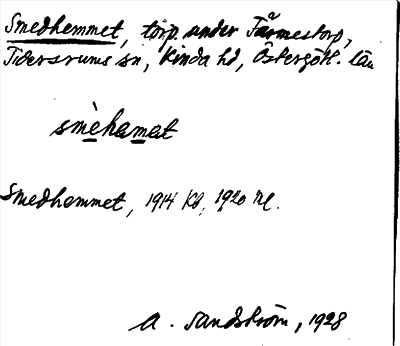 Smedhemmet, torp under Färmestorp,
Tidersrums sn, Kinda hd, Östergötl. län
smèhamat
Smedhemmet, 1914 Kb, 1920 Ml.
A. Sandström, 1928